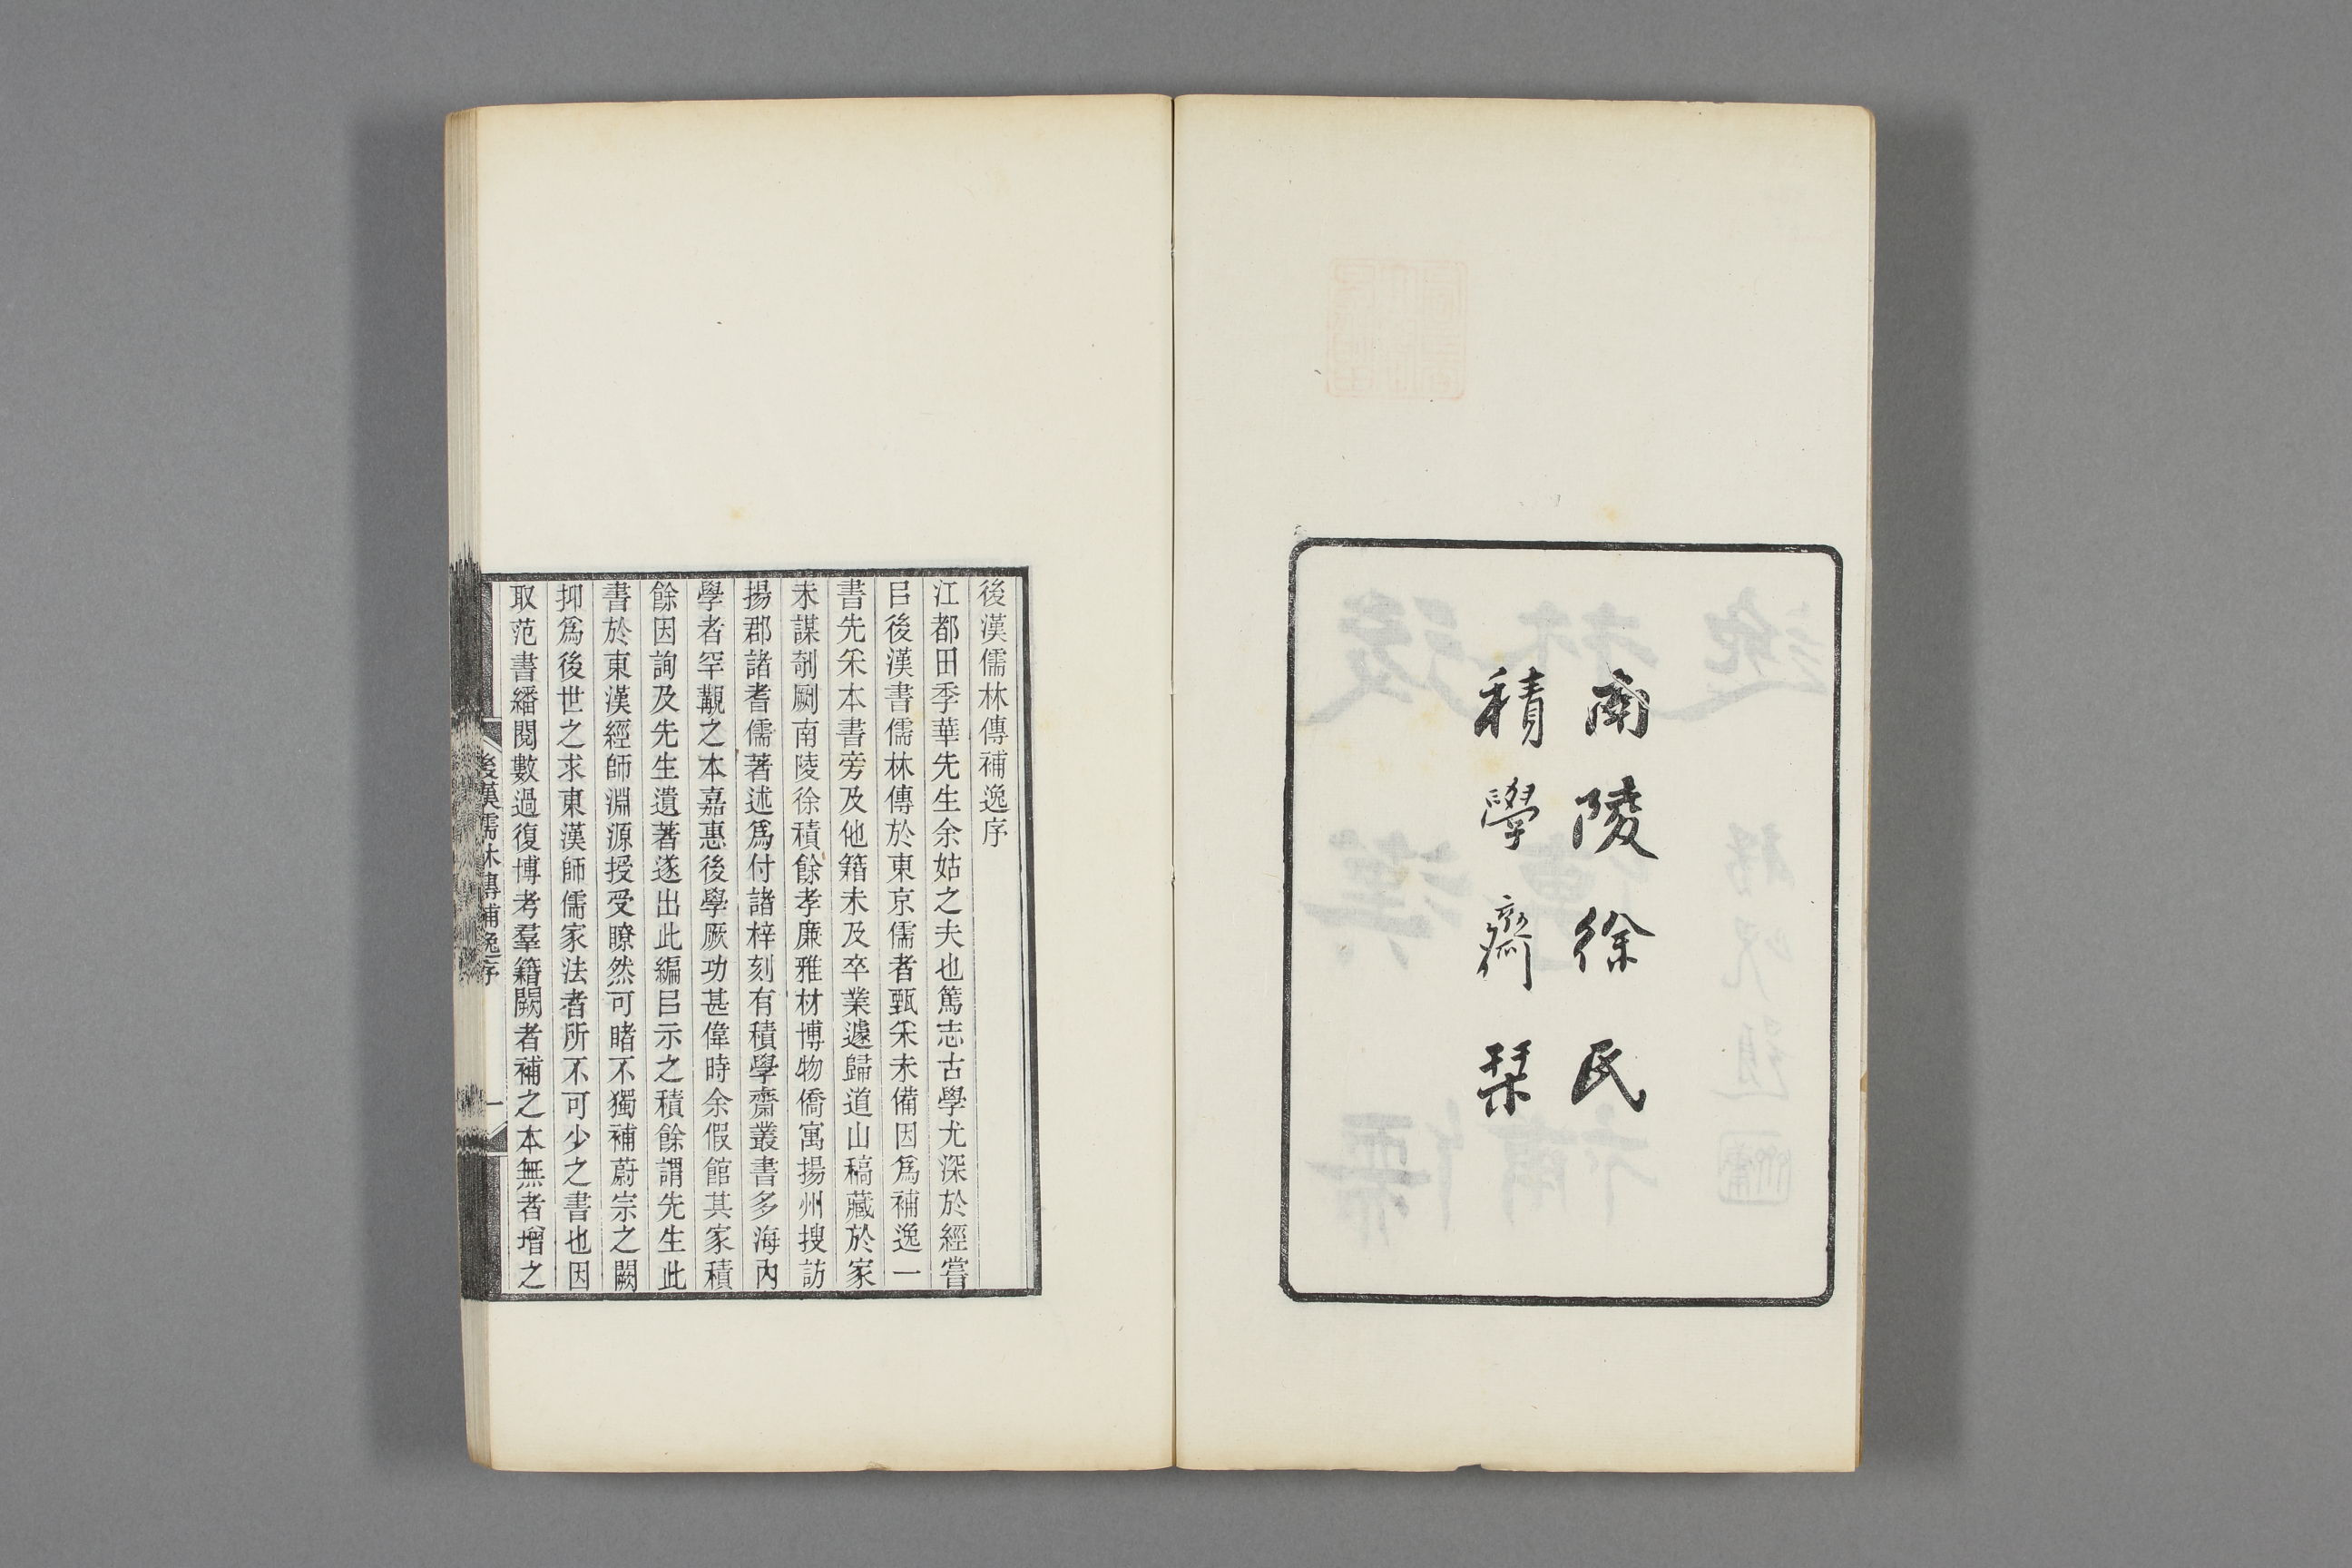 南陵徐氏
積學齋栞
後漢儒林傳補逸序
江都田季華先生余姑之夫也篤志古學尤深於經嘗
㠯後漢書儒林傳於東京儒者甄采未備因爲補逸一
書先采本書旁及他籍未及卒業遽歸道山稿藏於家
未謀剞劂南陵徐積餘孝廉雅材博物僑寓揚州搜訪
揚郡諸耆儒著述爲付諸梓刻有積學齋叢書多海內
學者罕觀之本嘉惠後學厥功甚偉時余假館其家積
餘因詢及先生遺著遂出此編㠯示之積餘謂先生此
書於東漢經師淵源授受瞭然可睹不獨補蔚宗之闕
抑爲後世之求東漢師儒家法者所不可少之書也因
取范書繙閱數過復博考羣籍闕者補之本無者增之
後漢儒林傳補逸序
一